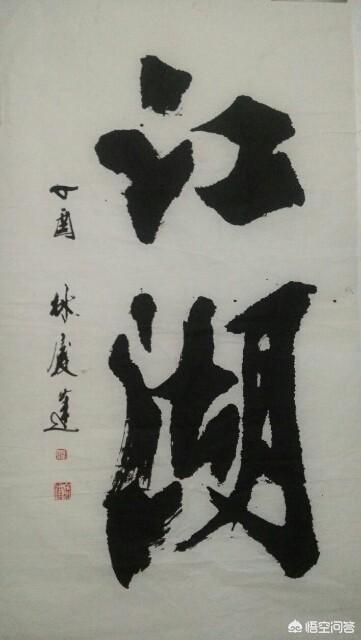 江湖
丁酉
林庆莲
悟空问答